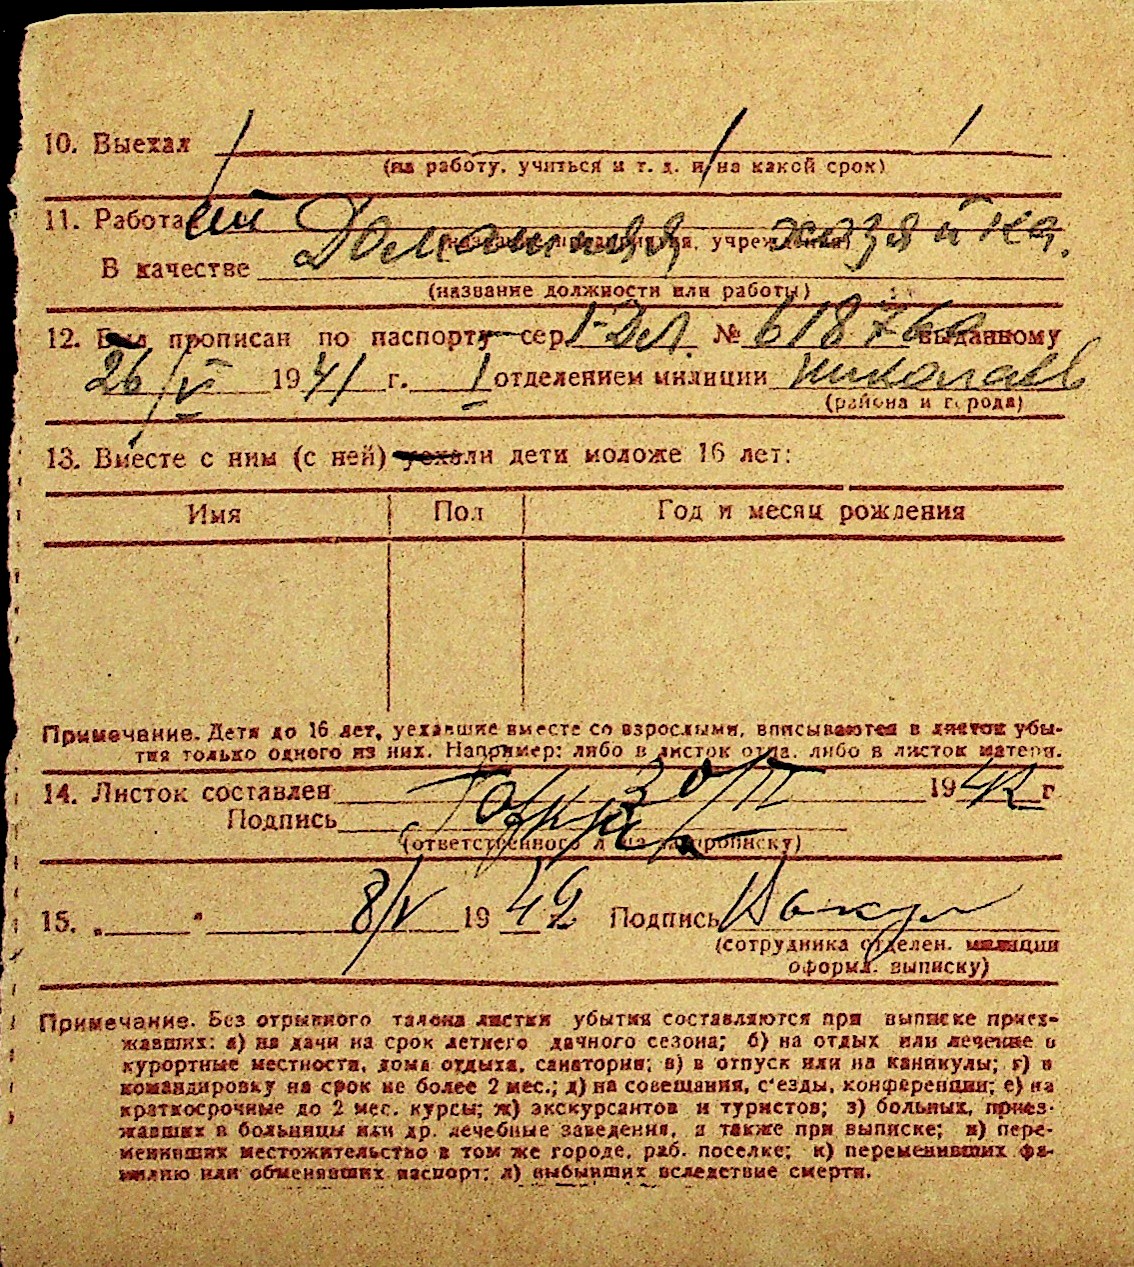 10. Выехал
(на работу, учиться и т. д. и на какой срок)
11. Работа Домашняя хозяйка.
учреждения)
В качестве
(название должности или работы)
12. Был прописан по паспорту сер. № 618760 выданному
26/V 1941 г. I отделением милиции Николаев
(района и города)
13. Вместе с ним (с ней) уехали дети моложе 16 лет:
Имя Пол Год и месяц рождения
Примечание. Дети до 16 лет, уехавшие вместе со взрослыми, вписываются в листок убы-
тия только одного из них. Например: либо в листок отца, либо в листок матери.
14. Листок составлен 30/IV 1942 г
Подпись
(ответственного л за прописку)
15. „ " 8/V 1942 Подпись
(сотрудника отделен. милиции
оформл. выписку)
Примечание. Без отрывного талона листки убытия составляются при выписке приез-
жавших: а) на дачи на срок летнего дачного сезона; б) на отдых или лечение в
курортные местности, дома отдыха, санатории; в) в отпуск или на каникулы; г) в
командировку на срок не более 2 мес.; д) на совещания, с'езды, конференции; е) на
краткосрочные до 2 мес. курсы; ж) экскурсантов и туристов; з) больных, приез-
жавших в больницы или др. лечебные заведения, а также при выписке; и) пере-
менивших местожительство в том же городе, раб. поселке; к) переменивших фа-
милию или обменявших паспорт; л) выбывших вследствие смерти.